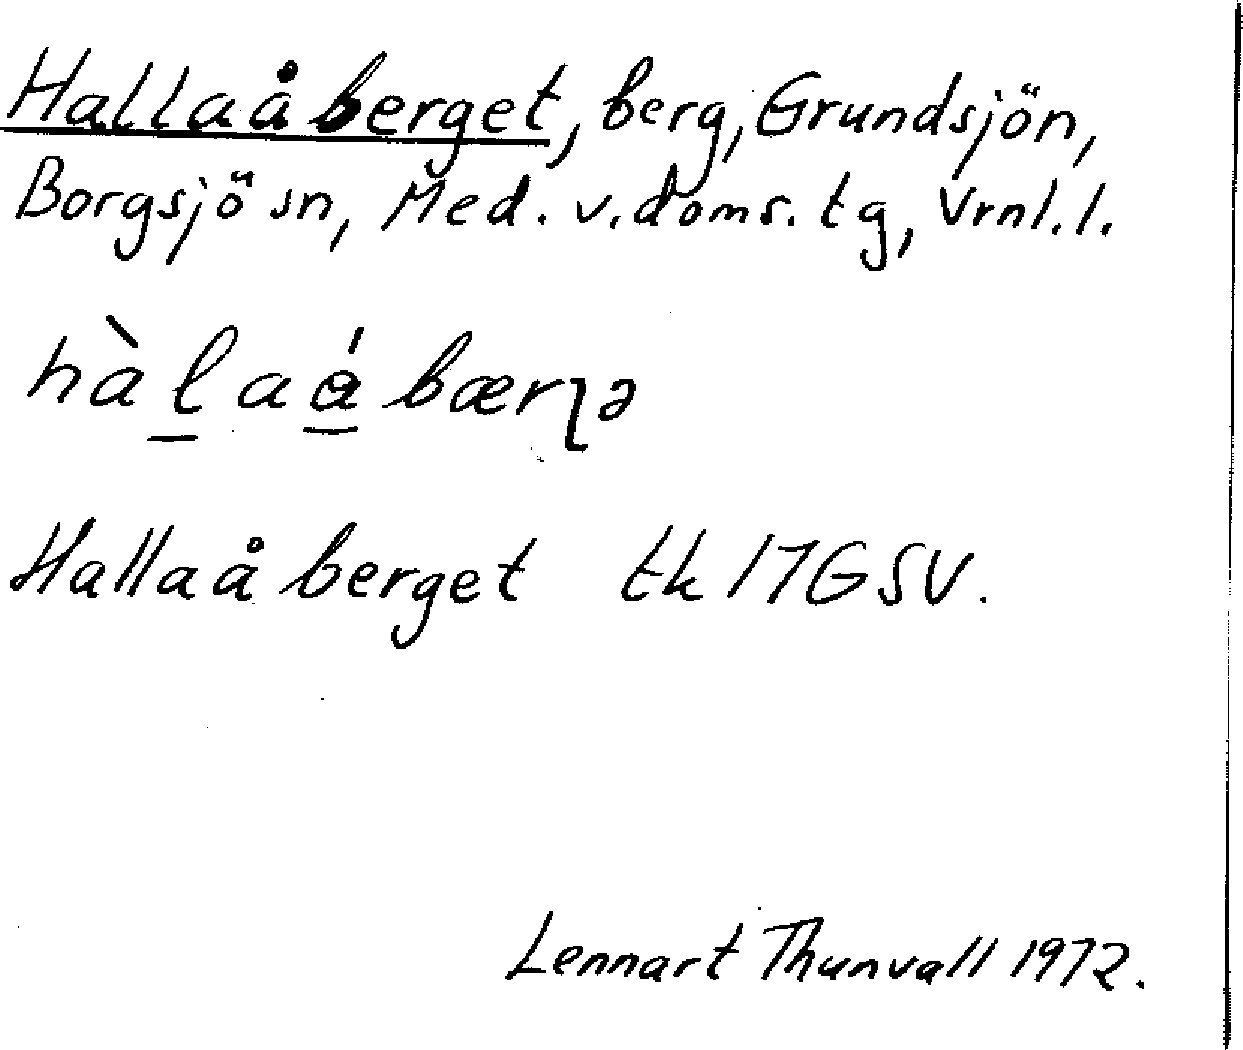 Hallaåberget, berg, Grundsjön,
Borgsjö sn, Med. v. doms. tg, Vrnl. l.
hàl̲aǻ̲bærɿə
Hallaåberget tk 17G SV.
Lennart Thunvall 1972.